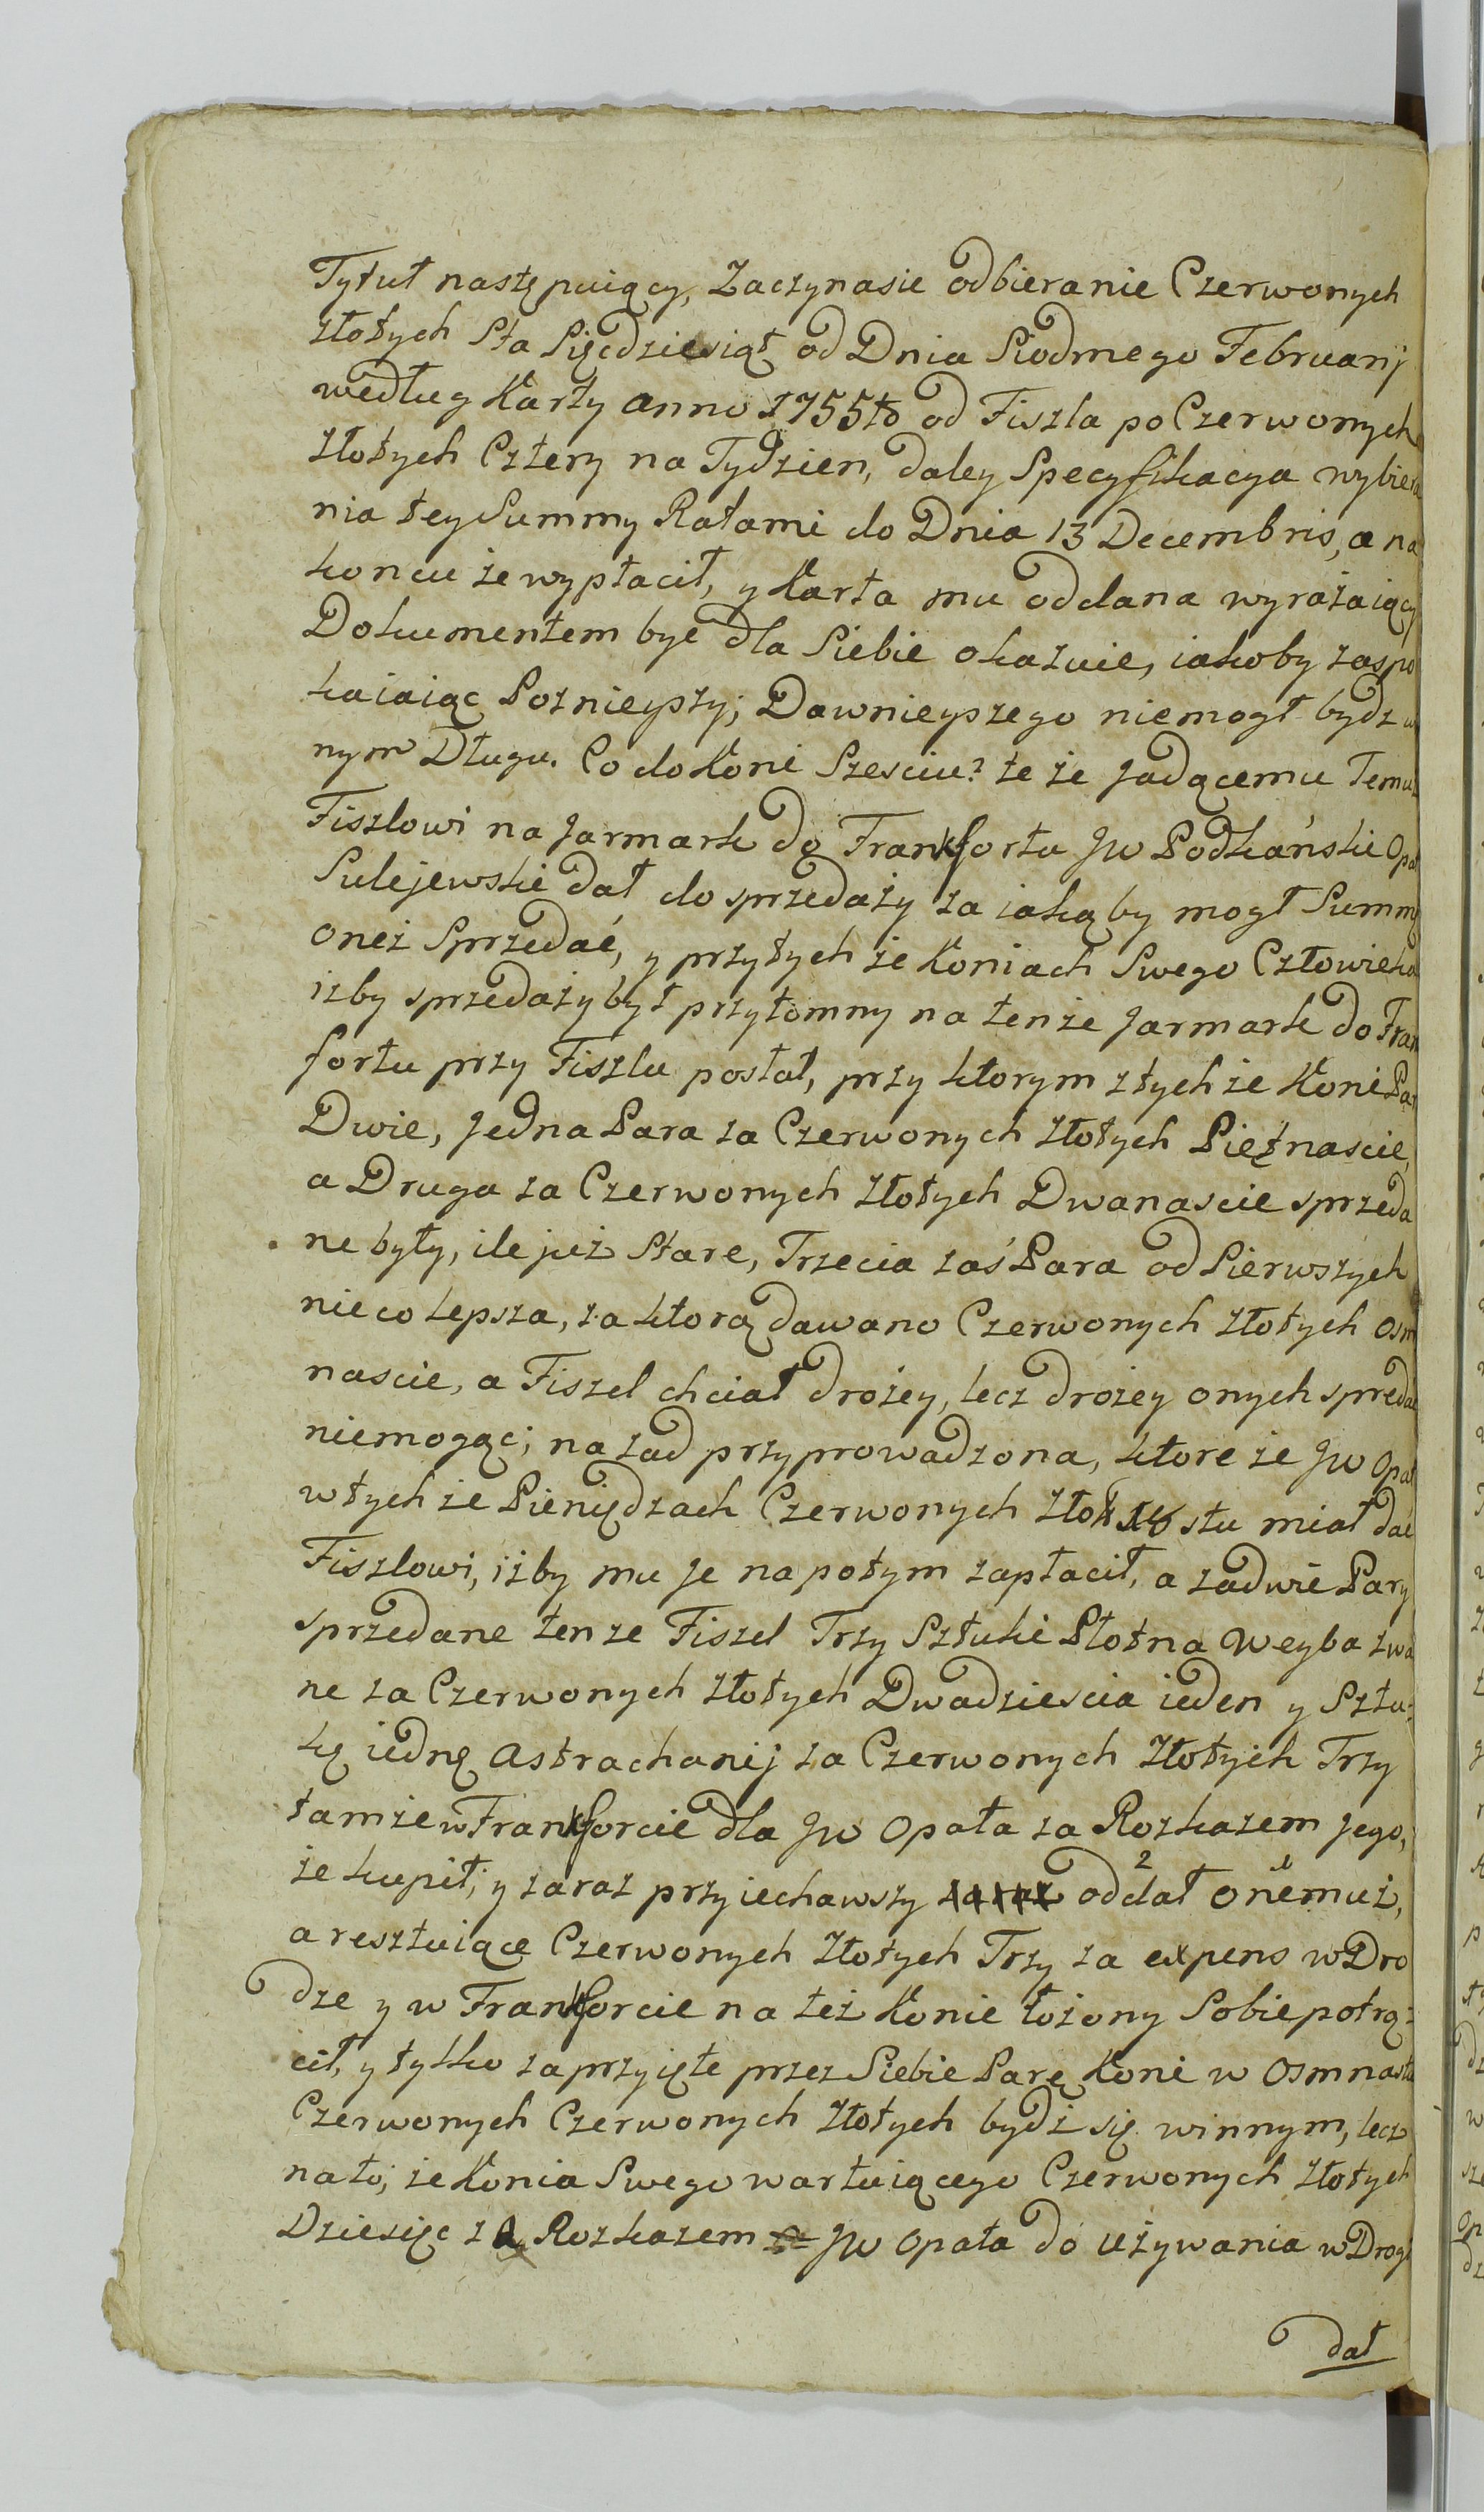 Tytuł następuiący, Zaczynasie odbieranie Czerwonych
złotych Sta Pięcdziesiąt od Dnia Siodmego Februarij
według Karty anno 1755to od Fiszla po Czerwonych
Złotych Cztery na Tydzien, daley Specyfikacya wybiera
nia tey Summy Ratami do Dnia 13 Decembris, a na
koncu że wypłacił, y Karta mu oddana wyrażaiący
Dokumentem byc dla Siebie okazuie, iakoby zaspo
kaiaiąc Poznieyszy; Dawnieyszego niemogł bydz w
nym Długu. Co do Koni Szesciu? te że Jadącemu Temuż
Fiszlowi na Jarmark do Frankfortu JW Podkański Opat
Sulejewski dał do sprzedaży za iaką by mogł Summę
oneż Sprzedać, y przytych że Koniach Swego Człowieka
izby sprzedaży był przytomny na tenże Jarmark do Fran
fortu przy Fiszlu posłał, przy ktorym ztych że Koni Par
Dwie, Jedna Para za Czerwonych Złotych Piętnascie,
a Druga za Czerwonych Złotych Dwanascie sprzeda
ne były, ile już Stare, Trzecia zaś Para od Pierwszych
nieco lepsza, za ktorą dawano Czerwonych Złotych Osm
nascie, a Fiszel chciał drożey, lecz drożey onych spredać
niemogąc; na zad przyprowadzona, ktore że JW Opat
wtych że Pieniędzach Czerwonych Złot 18 stu miał dać
Fiszlowi, iżby mu je napotym zapłacił, a zadwie Pary
sprzedane tenze Fiszel Trzy Sztuki Płotna Weyba zwa
ne za Czerwonych Złotych Dwadziescia ieden y Sztu:
kę iednę Astrachanij za Czerwonych Złotych Trzy
tamże w Frankforcie dla JW Opata za Rozkazem Jego,
że kupił; y zaraz przyiechawszy oddał onemuż,
a resztuiące Czerwonych Złotych Trzy za expens w Dro
dze y w Frankforcie na też Konie łożony Sobie potrą:
cił, y tylko za przyięte przez Siebie Parę Koni w Osmnastu
Czerwonych Czerwonych Złotych bydż się winnym, lecz
nato; że Konia Swego wartuiącego Czerwonych Złotych
Dziesięc za Rozkazem JW Opata do używania w Drogę
dał